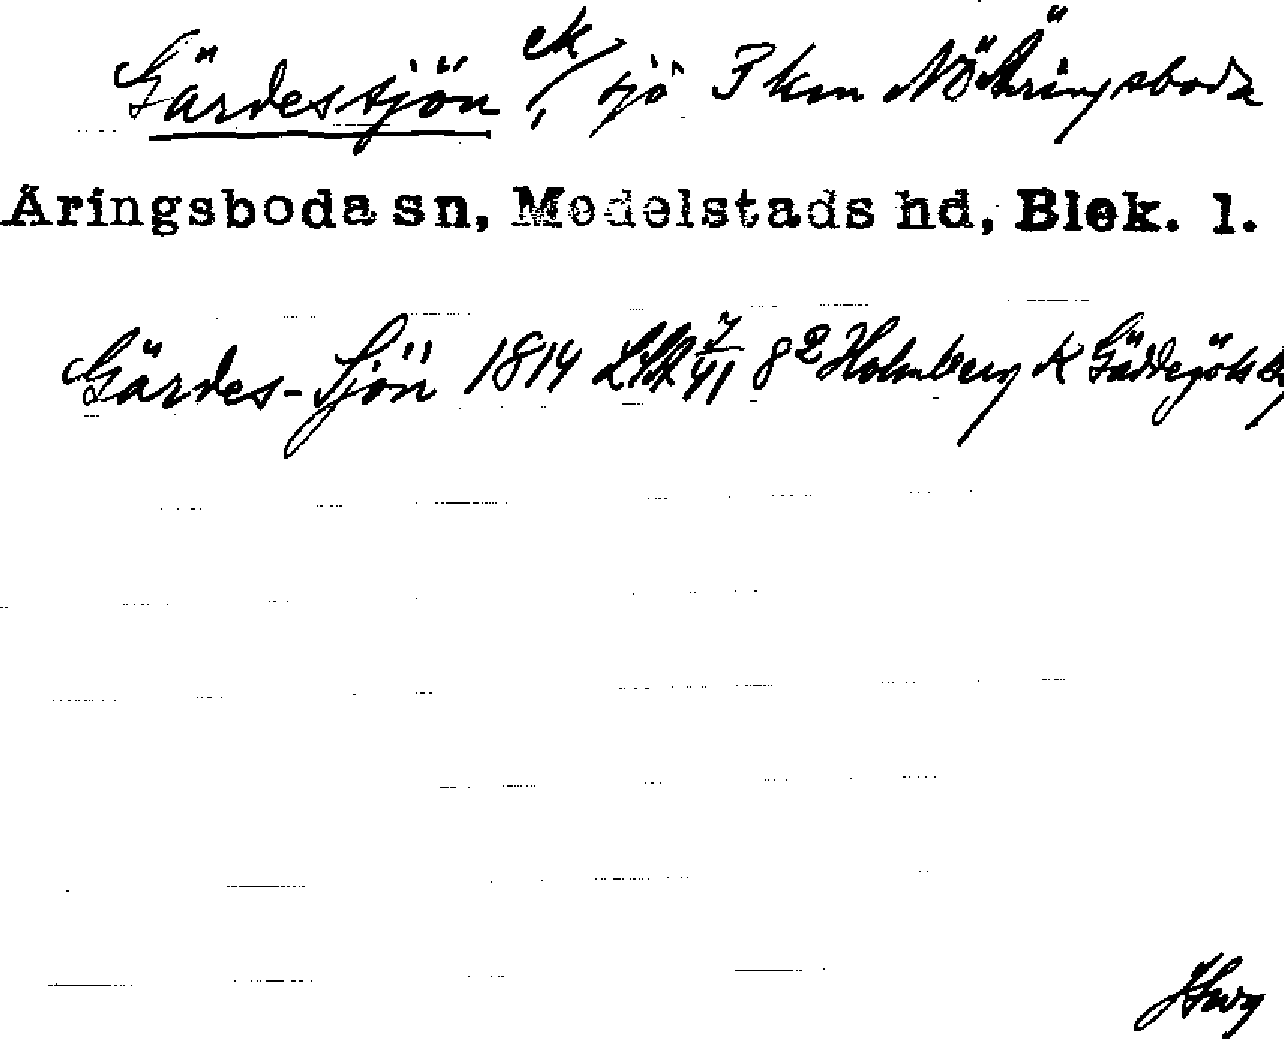 Gärdessjön ek/, sjö 3 km NÖ Äringsboda
Äringsboda sn, Medelstads hd, Blek. l.
Gärdes-Sjön 1814 LSA 7/41 8² Holmberg K Gäddegöls